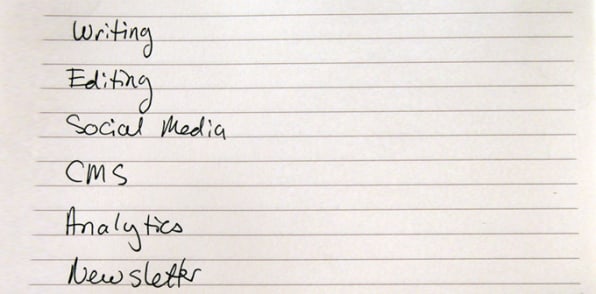 Writing
Editing
Social Media
CMS
Analytics
Newsletter